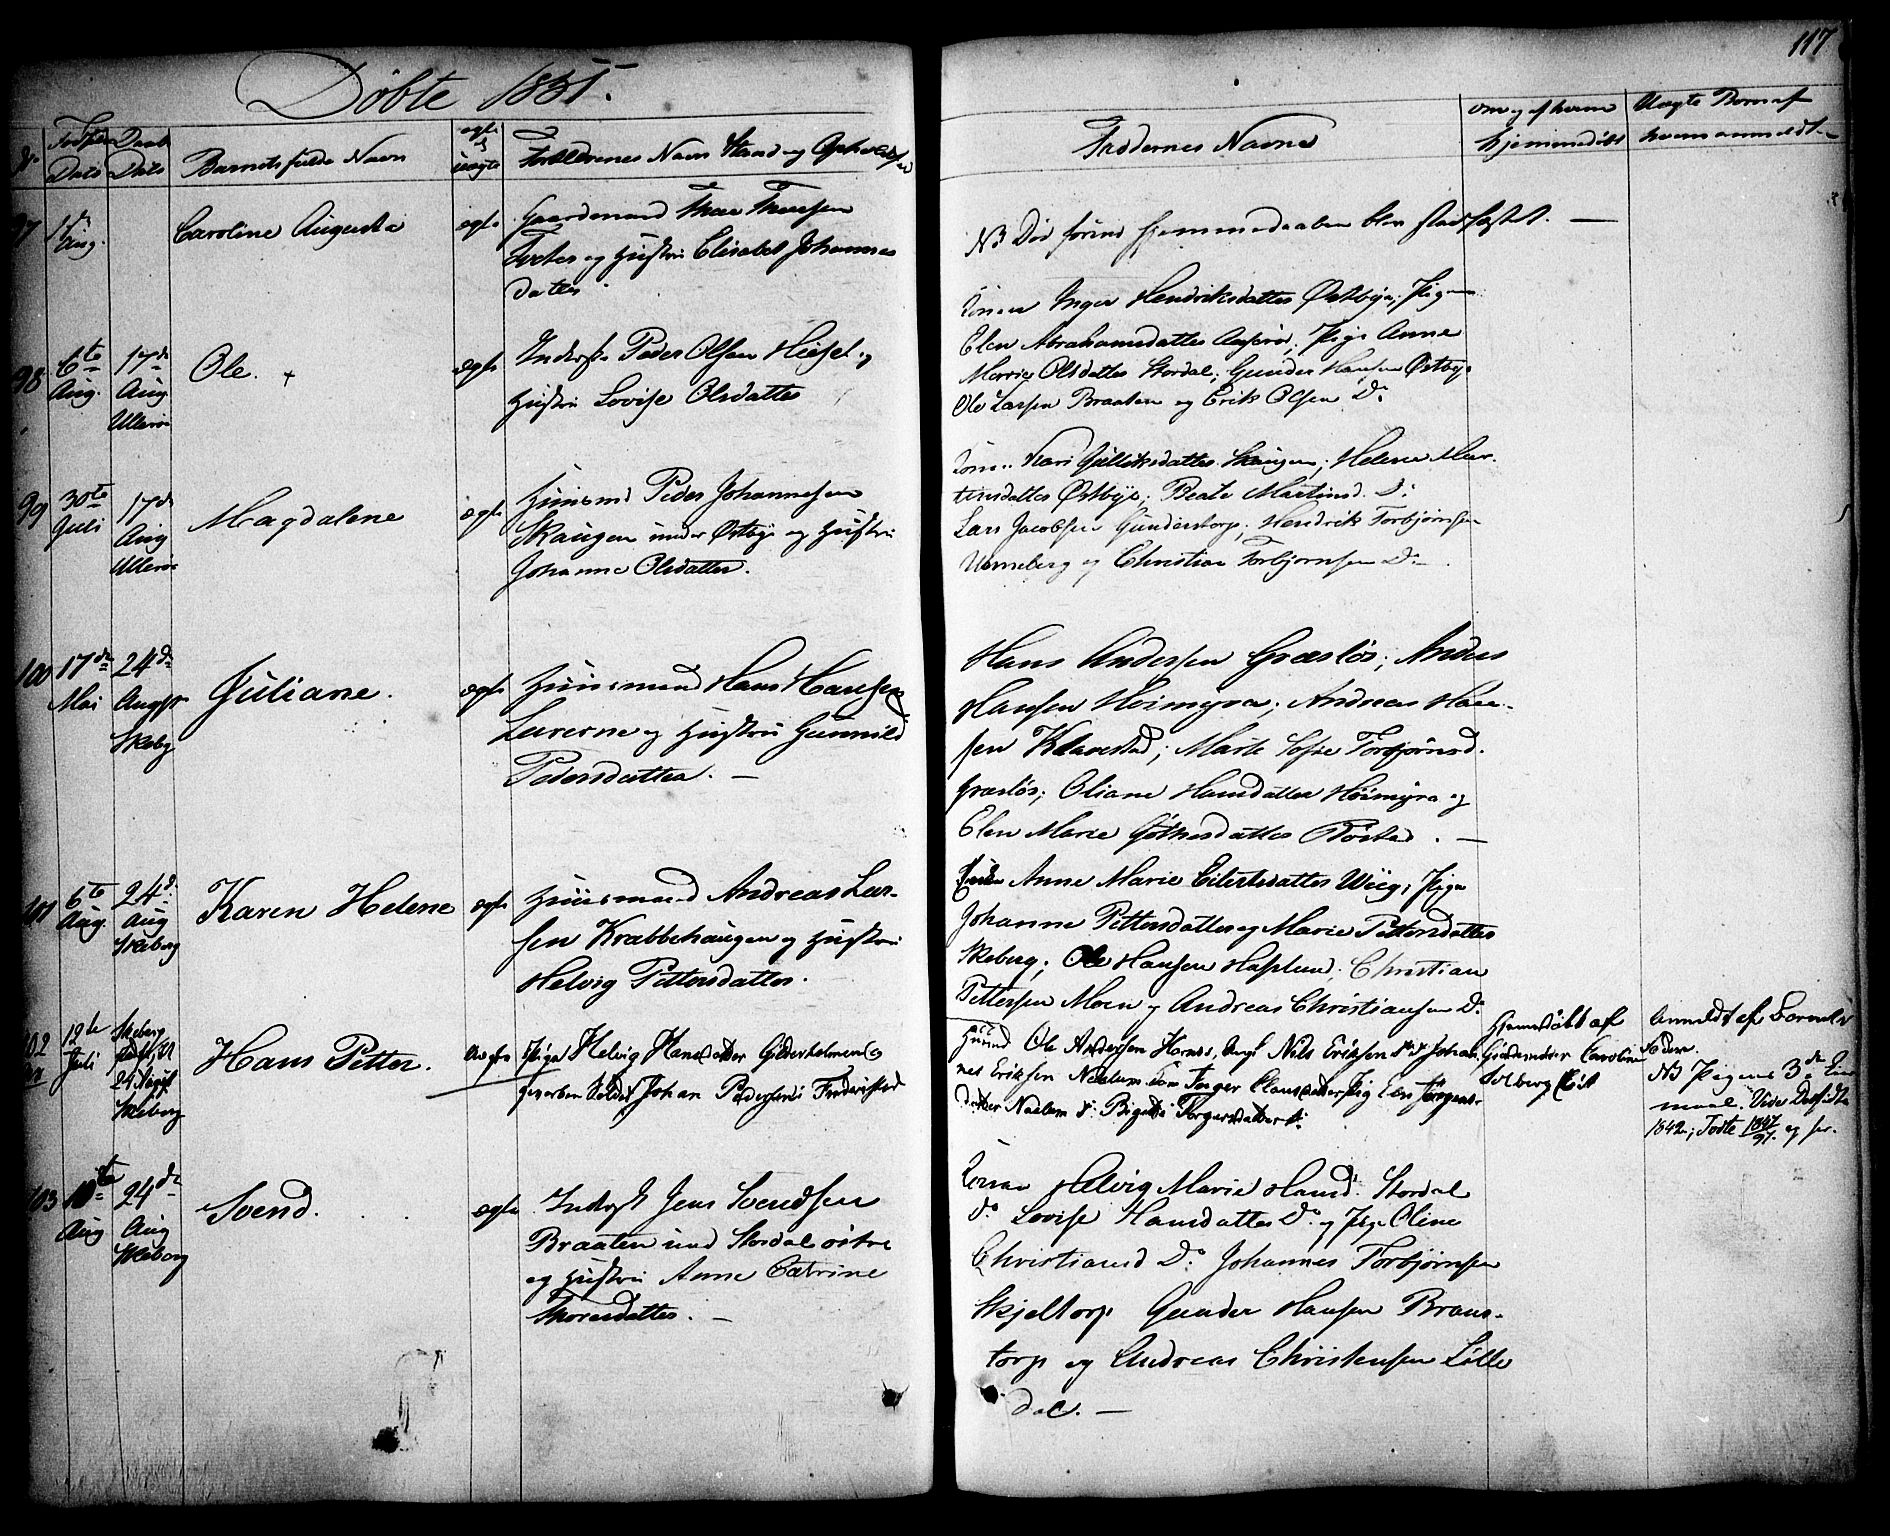 117
Døbte 1851.
No Fødsels Dato Daab Dato Barnets fulde Navn ægte el uægte Forældrenes Navn Stand og Opholdssted
Faddernes Navne om og af hvem hjemmedøbt Uægte Børn af hvem anmeldt
97 1ste Aug. Caroline Augusta ægte Gaardmand Thore Thoresen
Tveter og Hustru Elisabet Johannes
datter.
NB Død førend Hjemmedaaben blev stadfæstet. —
98 6te Aug. 17de Aug Ullerøi Ole. + ægte Inderst Peder Olsen og
Hustru Lovise Olsdatter
Konen Inger Hendriksdatter Østbye; Pige
Elen Abrahamsdatter Pige Anne
Marie Olsdatter Stordal; Gunder Hansen Østbye
Ole Larsen Braaten og Erik Olsen Do
99 30te Juli 17de Aug Ullerøi Magdalene ægte Huusmd Peder Johannesen
Skaugen under Østbye og Hustru
Johanne Olsdatter.
Kone Kari Skaugen; Helene Mar-
tinsdatter Østbye; Beate Martinsd. Do
Lars Jacobsen Gunderstorp; Hendrik Torbjørnsen
Unneberg og Christian Torbjørnsen Do
100 17de Mai 24de August Skeberg Juliane. ægte Huusmand Hans Hansen
og Hustru Gunnild
Pedersdatter. —
Hans Andersen Græsløs; Anders
Hansen Høimyra; Andreas Han-
sen Klavestad; Marte Sofie Torbjørnsd.
Græsløs; Oliane Hansdatter Høimyra og
Elen Marie Røstad. —
101 6te Aug. 24de Aug Skeberg Karen Helene ægte Huusmand Andreas Lar-
sen Krabbehaugen og Hustru
Helvig Pettersdatter.
Anne Marie Eilertsdatter Wiig, Pige
Johanne Pettersdatter og Marie Pettersdatter
Skeberg; Ole Hansen Haslund, Christian
Pettersen Moen og Andreas Christiansen Do
102 12te Juli Skeberg 24 August Skeberg Hans Petter. uægte Pige Helvig Hansdatter Gilderholmen og
Johan Pedersen i Frederikstad
Huusmd Ole Andersen Hornes, Ungk Nils Eriksen Johan-
nes Eriksen Navlum Kone Inger Clausdatter Pig Elen Jørgens-
datter Navlum Do Torgersdatter Do
Hjemmedøbt af
Caroline
Solberg
Anmeldt af Barnets
Fader.
NB Pigens 3de Leier-
maal. Vide Døbsidte
1842; Fødte 1847 og for.
103 10te Aug 24de Aug Skeberg Svend. ægte Inderst Jens Svendsen
Braaten und Stordal østre
og Hustru Anne Catrine
Thoresdatter. —
Konen Helvig Marie Hansd. Stordal
do Lovise Hansdatter Do og Pige Oline
Christiansd Do Johannes Torbjørnsen
Skjeltorp Gunder Hansen Braus-
torp og Andreas Christensen Lille
dal. —